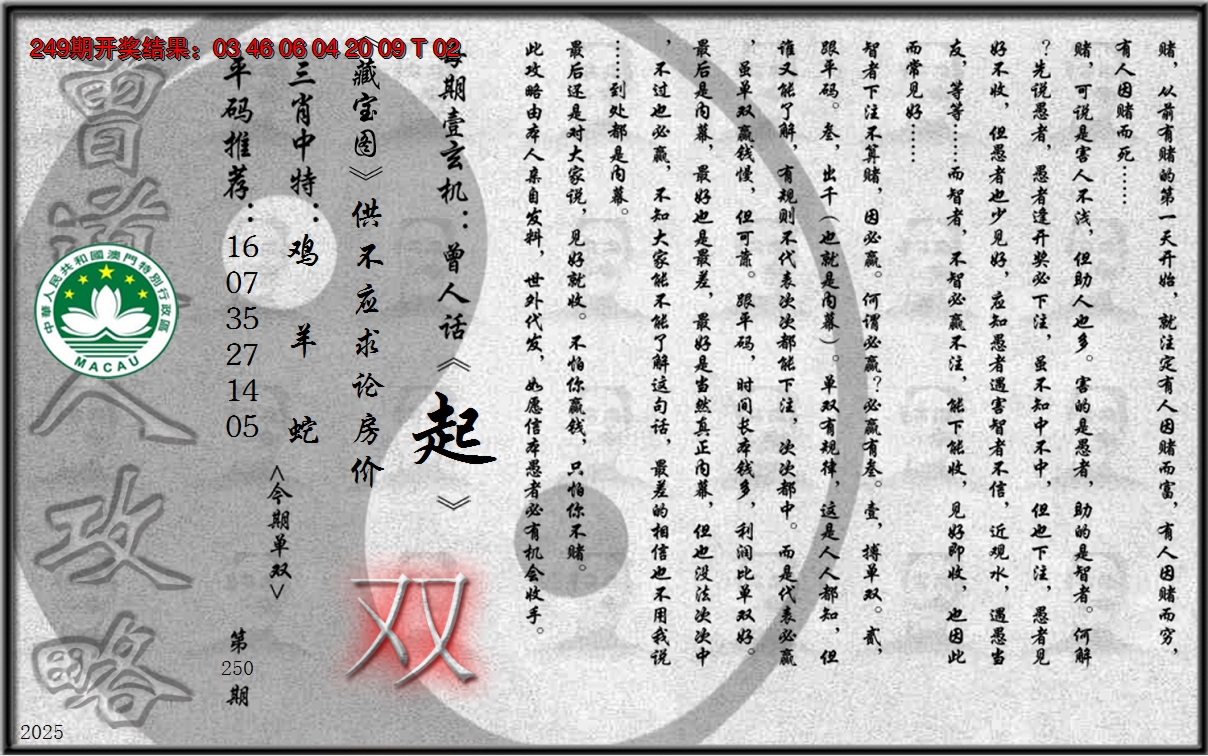 249期开奖结果：03 46 06 04 20 09 T 02
赌，从前有赌的第一天开始，就注定有人因赌而富，有人因赌而穷，
有人因赌而死……
赌，可说是害人不浅，但助人也多。害的是愚者，助的是智者。何解
？先说愚者，愚者逢开奖必下注，虽不知中不中，但也下注，愚者见
好不收，但愚者也少见好，应知愚者遇害智者不信，近观水，遇愚当
友，等等……而智者，不智必赢不注，能下能收，见好即收，也因此
而常见好……
智者下注不算赌，因必赢。何谓必赢？必赢有叁。壹，搏单双。贰，
跟平码。叁，出千（也就是内幕）。单双有规律，这是人人都知，但
谁又能了解，有规则不代表次次都能下注，次次都中。而是代表必赢
，虽单双赢钱慢，但可靠。跟平码，时间长本钱多，利润比单双好。
最后是内幕，最好也是最差，最好是当然真正内幕，但也没法次次中
，不过也必赢，不知大家能不能了解这句话，最差的相信也不用我说
……到处都是内幕。
最后还是对大家说，见好就收。不怕你赢钱，只怕你不赌。
此攻略由本人亲自发料，世外代发，如愿信本愚者必有机会收手。
每期壹玄机：曾人话《起》
《藏宝图》供不应求论房价
双
三肖中特：鸡 羊 蛇
<今期单双>
平码推荐：
16
07
35
27
14
05
第
250
期
曾道人攻略
中華人民共和國澳門特別行政區
MACAU
2025